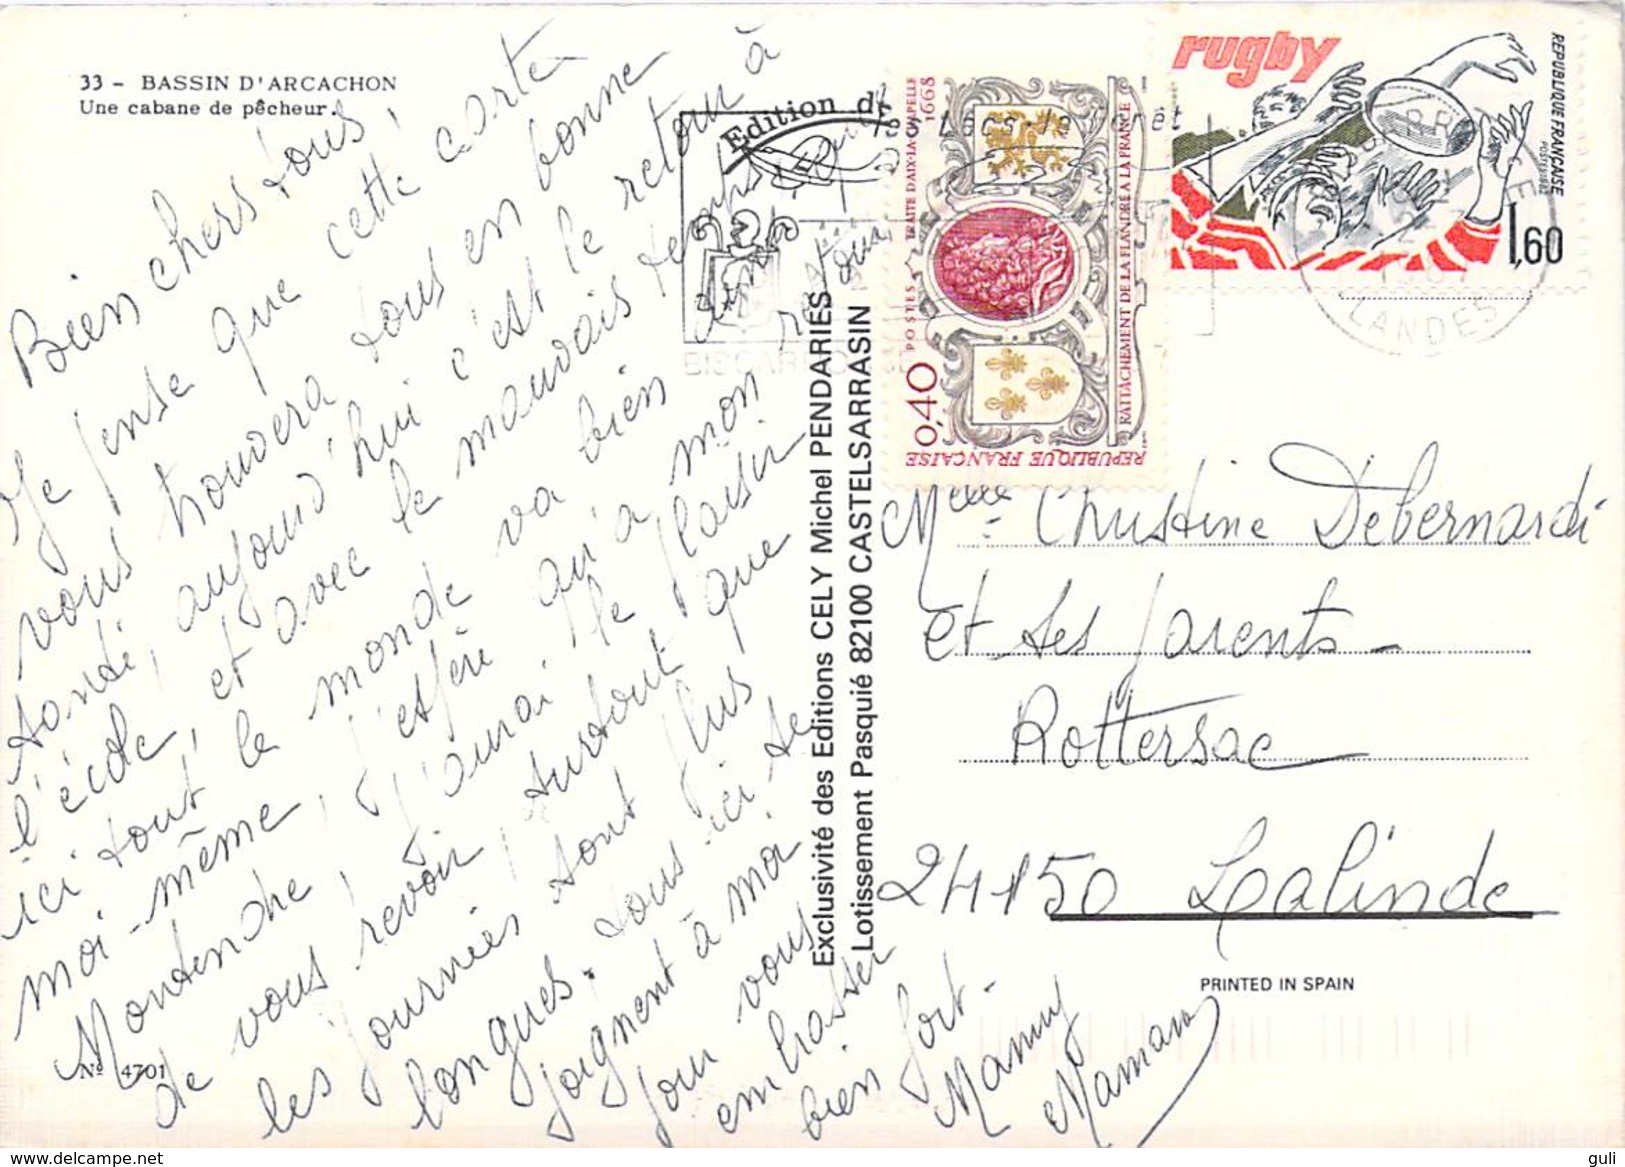 33 - BASSIN D'ARCACHON
Une cabane de pêcheur.
Bien chers tous,
Je pense que cette carte
vous trouvera tous en bonne
santé, aujourd'hui c'est le retour à
l'école, et avec le mauvais temps
ici tout le monde va bien
moi-même, j'espère qu'à mon retour
Montenche, j'aurai le plaisir
de vous revoir, surtout que
les journées sont plus
longues. tous ici se
joignent à moi
pour vous
embrasser
bien fort -
Mamy
Maman
Nº 4701
Exclusivité des Editions CELY Michel PENDARIES
Lotissement Pasquié 82100 CASTELSARRASIN
Edition de
BISCARROSSE
LANDES
POSTES TRAITE D'AIX-LA-CHAPELLE 1668
0,40
RATTACHEMENT DE LA FLANDRE A LA FRANCE
REPUBLIQUE FRANÇAISE
rugby
REPUBLIQUE FRANÇAISE
POSTES 1982
1,60
Melle Christine Debernardi
et ses parents -
Rottersac
24150 Lalinde
PRINTED IN SPAIN
© delcampe.net
guli